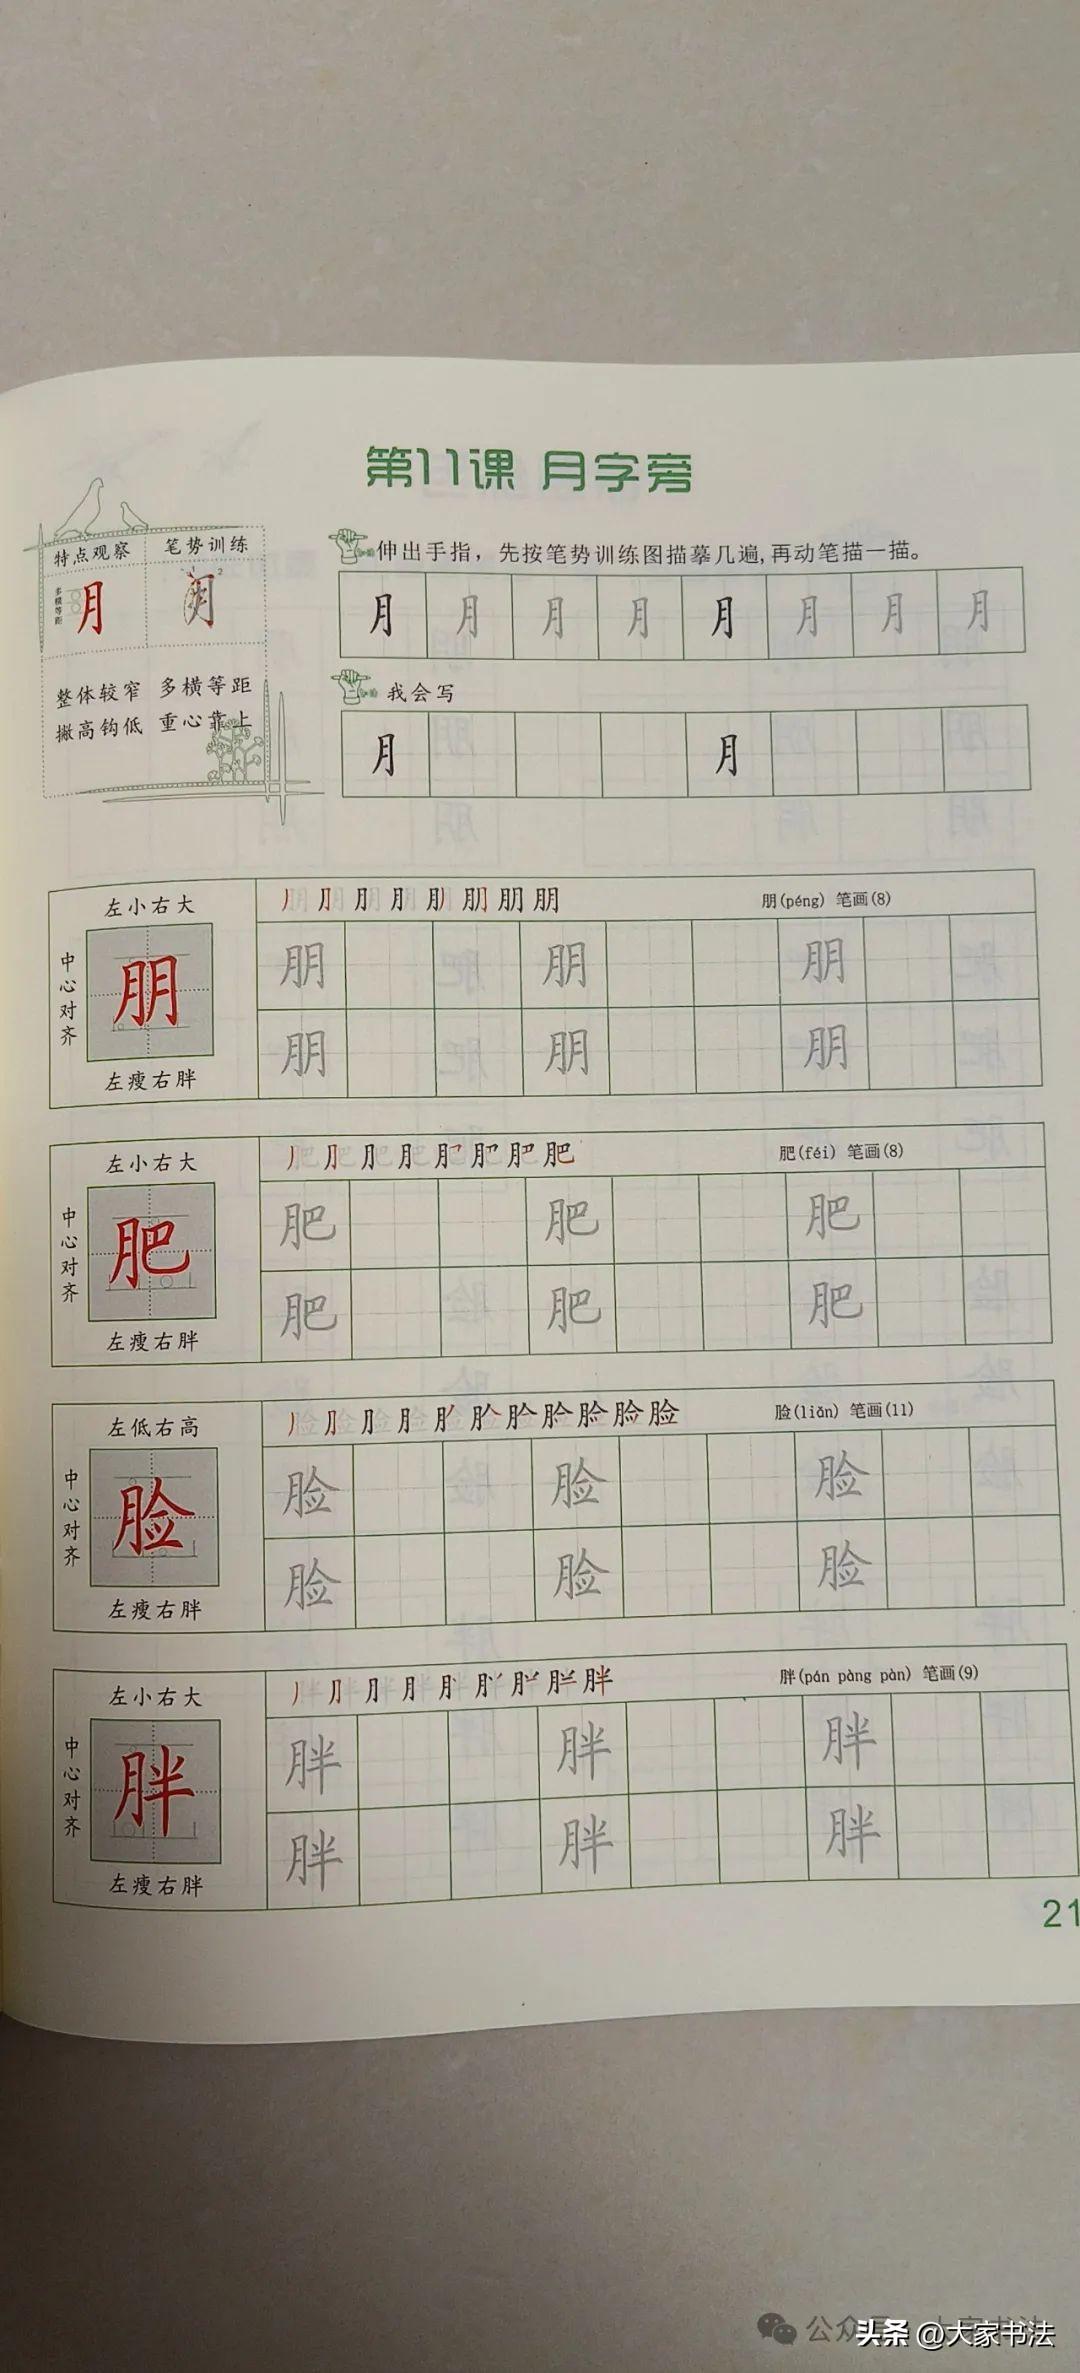 第11课 月字旁
特点观察 笔势训练
多横等距
月 月
整体较窄 多横等距
撇高钩低 重心靠上
伸出手指，先按笔势训练图描摹几遍,再动笔描一描。
月 月 月 月 月 月 月 月
我会写
月 月
左小右大
中心对齐
朋
左瘦右胖
朋(péng) 笔画(8)
朋 朋 朋
朋 朋 朋
左小右大
中心对齐
肥
左瘦右胖
肥(féi) 笔画(8)
肥 肥 肥
肥 肥 肥
左低右高
中心对齐
脸
左瘦右胖
脸(liǎn) 笔画(11)
脸 脸 脸
脸 脸 脸
左小右大
中心对齐
胖
左瘦右胖
胖(pán pàng pàn) 笔画(9)
胖 胖 胖
胖 胖 胖
21
头条 @大家书法